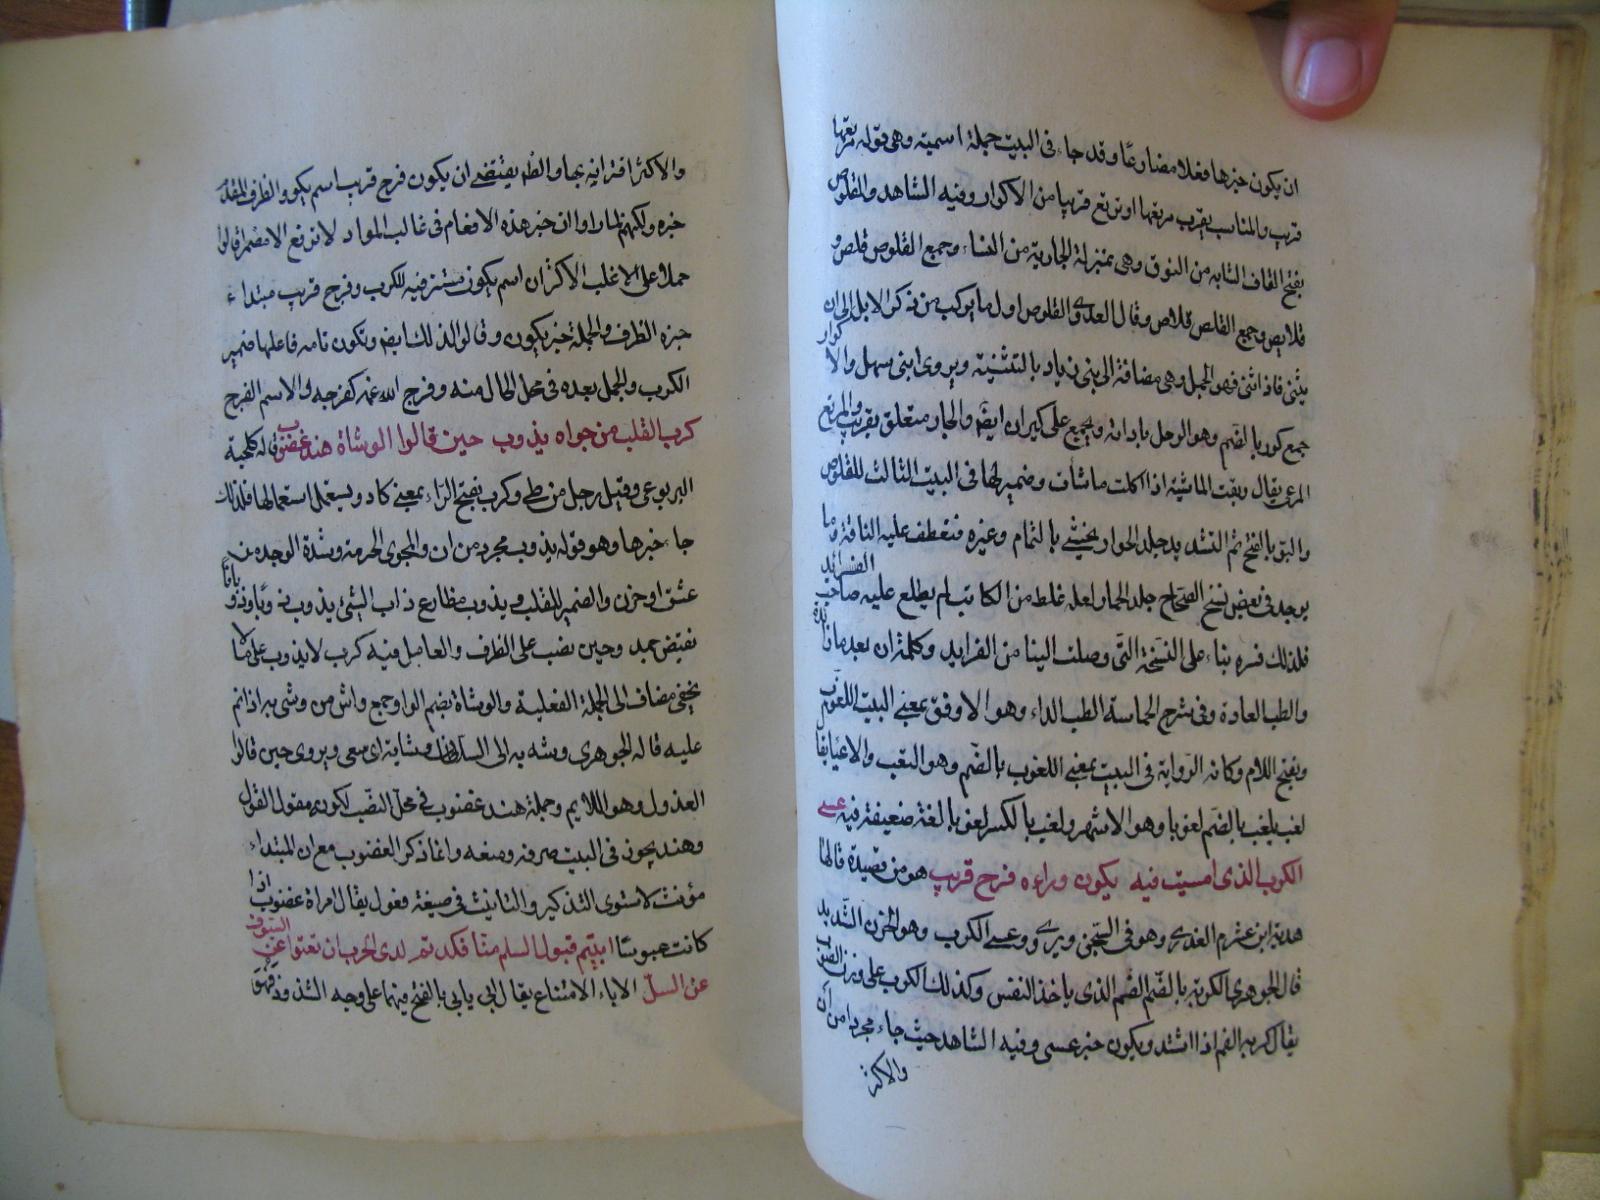 ان يكون خبرها فعلا مضارعا وقد جاء فى البيت جملة اسمية وهى قوله مرتعها
قريب والمناسب يقرب مرتعها او ترتع قريبا من الاكوار وفيه الشاهد والقلوص
بفتح القاف الشابه من النوق وهى بمنزلة الجارية من النساء وجمع القلوص قلص و
قلايص وجمع القلص قلاص وقال العدوى القلوص اول ما يركب من ذكر الابل الى ان
يثنى فاذا اثنى فهو الجمل وهى مضافة الى بنى زياد بالتثنية ويروى ابنى سهيل والاكوار
جمع كور بالضم وهو الرحل باداته ويجمع على كيران ايضا والجار متعلق بقريب والمرتع
المرعى يقال رتعت الماشية اذا اكلت ماشأت وضمير لها فى البيت الثالث للقلوص
والبو بالفتح ثم التشديد جلد الحوار يحشى بالثمام وغيره فتعطف عليه الناقة وما
يوجد فى بعض نسخ الصحاح جلد الحمار لعله غلط من الكاتب لم يطلع عليه صاحب الفرائد
فلذلك فسره بناء على النسخة التى وصلت الينا من الفرايد وكلمة ان بعد ما زائدة
والطب العادة وفى شرح الحماسة الطب الداء وهو الاوفق بمعنى البيت اللغوب
وبفتح اللام وكانه الرواية فى البيت بمعنى اللغوب بالضم وهو التعب والاعيا يقا
لغب يلغب بالضم لغوبا وهو الاشهر ولغب بالكسر لغوبا لغة ضعيفة فيه عسى
الكرب الذى امسيت فيه يكون وراءه فرج قريب هو من قصيدة قالها
هدبة ابن خشرم العذرى وهو فى السجن ويروى وعسى الكرب وهو الحزن الشديد
قال الجوهرى الكربة بالضم الغم الذى ياخذ النفس وكذلك الكرب على وزن الضرب
يقال كربه الغم اذا اشتد ويكون خبر عسى وفيه الشاهد حيث جاء مجردا من ان
والاكثر
والاكثر اقترانه بها والظ يقتضى ان يكون فرج قريب اسم يكون والظرف المقدم
خبره ولكنهم لما راوا ان خبر هذه الافعال فى غالب المواد لا ترفع الا مضمرا قالوا
حملا على الاغلب الاكثر ان اسم يكون مستتر فيه للكرب وفرج قريب مبتداء
خبره الظرف والجملة خبر يكون وقالوا لذلك ايضا وتكون تامه فاعلها ضمير
الكرب والجمل بعده فى محل الحال منه وفرج الله غمه كفرجه والاسم الفرج
كرب القلب من جواه يذوب حين قالوا الوشاة هند غضوب قاله كلحبة
اليربوعى وقيل رجل من طى وكرب بفتح الراء بمعنى كاد ويستعمل استعمالها فلذلك
جاء خبرها وهو قوله يذوب مجردا من ان والجوى الحرقة وشدة الوجد من
عشق او حزن والضمير للقلب ويذوب مضارع ذاب الشئ يذوب ذوبا وذوبانا
نقيض جمد وحين نصب على الظرف والعامل فيه كرب لا يذوب على ما لا
يخفى مضاف الى الجملة الفعلية والوشاة بضم الواو جمع واش من وشى به اذا نم
عليه قاله الجوهرى وشه به الى السلطان وشاية اى سعى ويروى حين قالوا
العذول وهو اللايم وجملة هند غضوب فى محل النصب لكونه مقول القول
وهند يجوز فى البيت صرفه ومنعه وانما ذكر الغضوب مع ان المبتداء
مؤنث لاستوى التذكير والتانيث فى صيغة فعول يقال امراة غضوب اذا
كانت عبوسا ابيتم قبول السلم منا فكدتم لدى الحرب ان تغنوا السيوف
عن السل الاباء الامتناع يقال ابى يابى بالفتح فيهما على وجه الشذوذ فهو